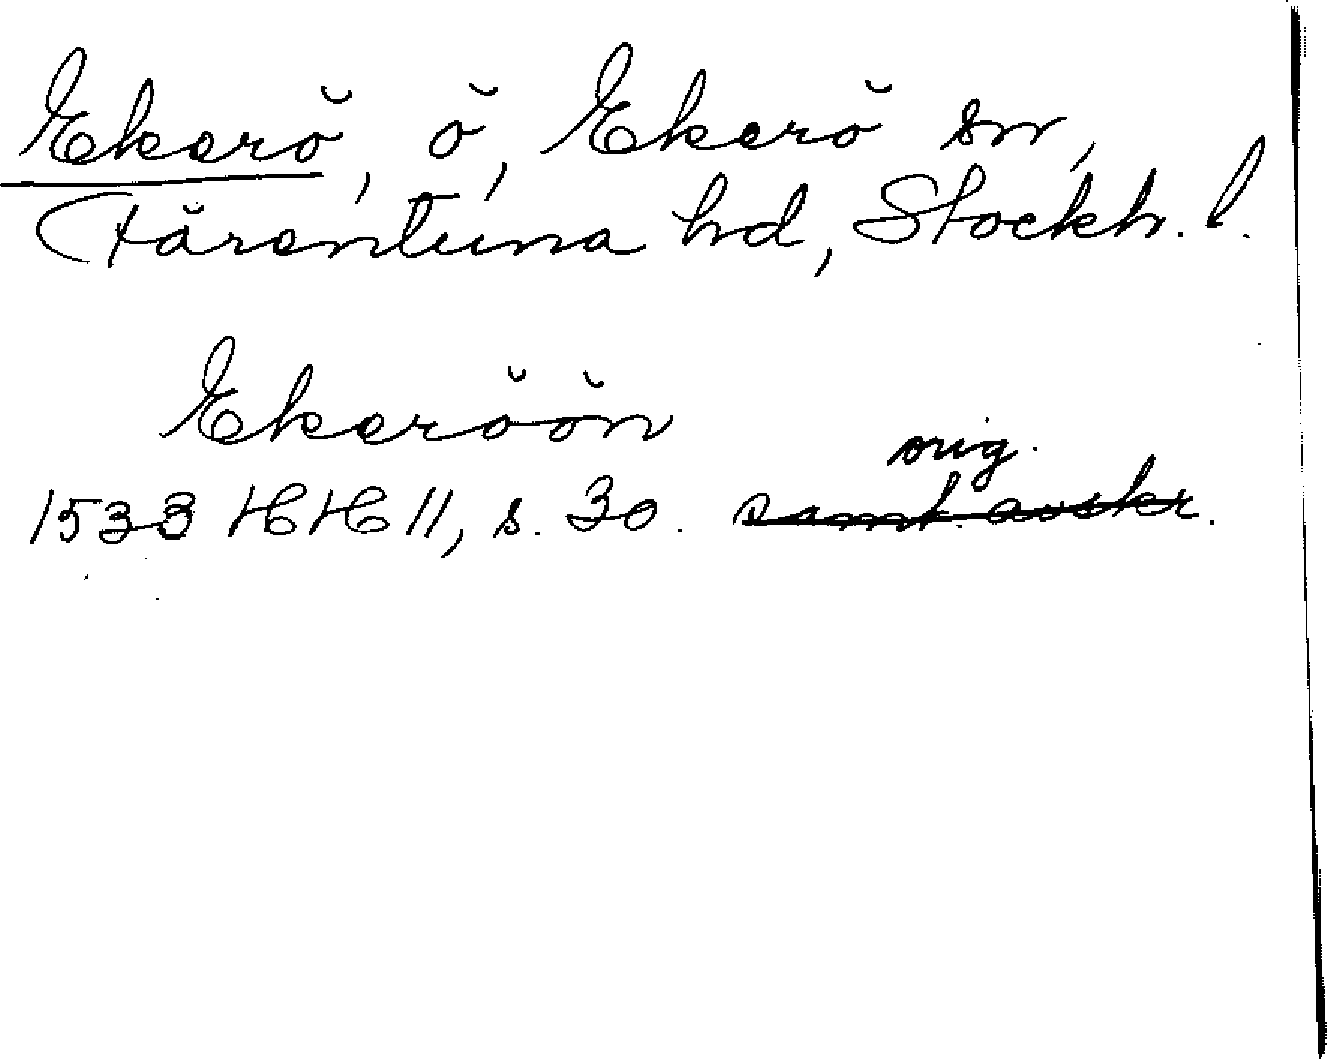 Ekerö, ö, Ekerö sn,
Färentuna hd, Stockh. l.
Ekeröön
orig.
1533 HH 11, s. 30. samt. avskr.